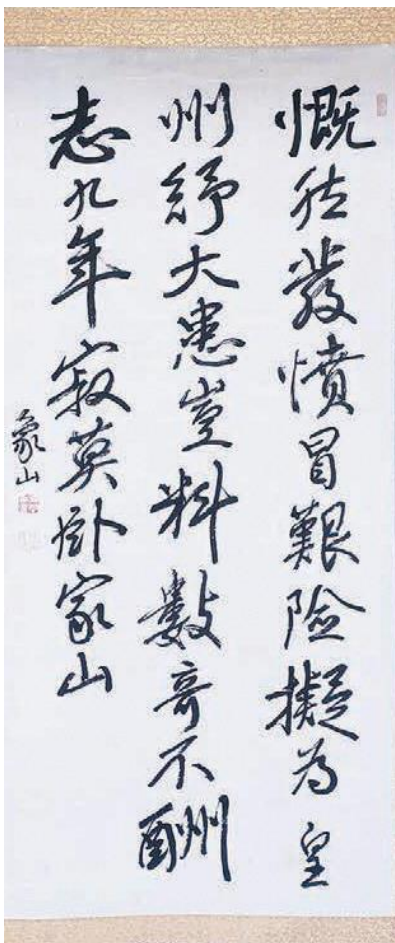 慨然發憤冒艱險擬為皇
州紓大患豈料數奇不酬
志九年寂莫卧家山
象山